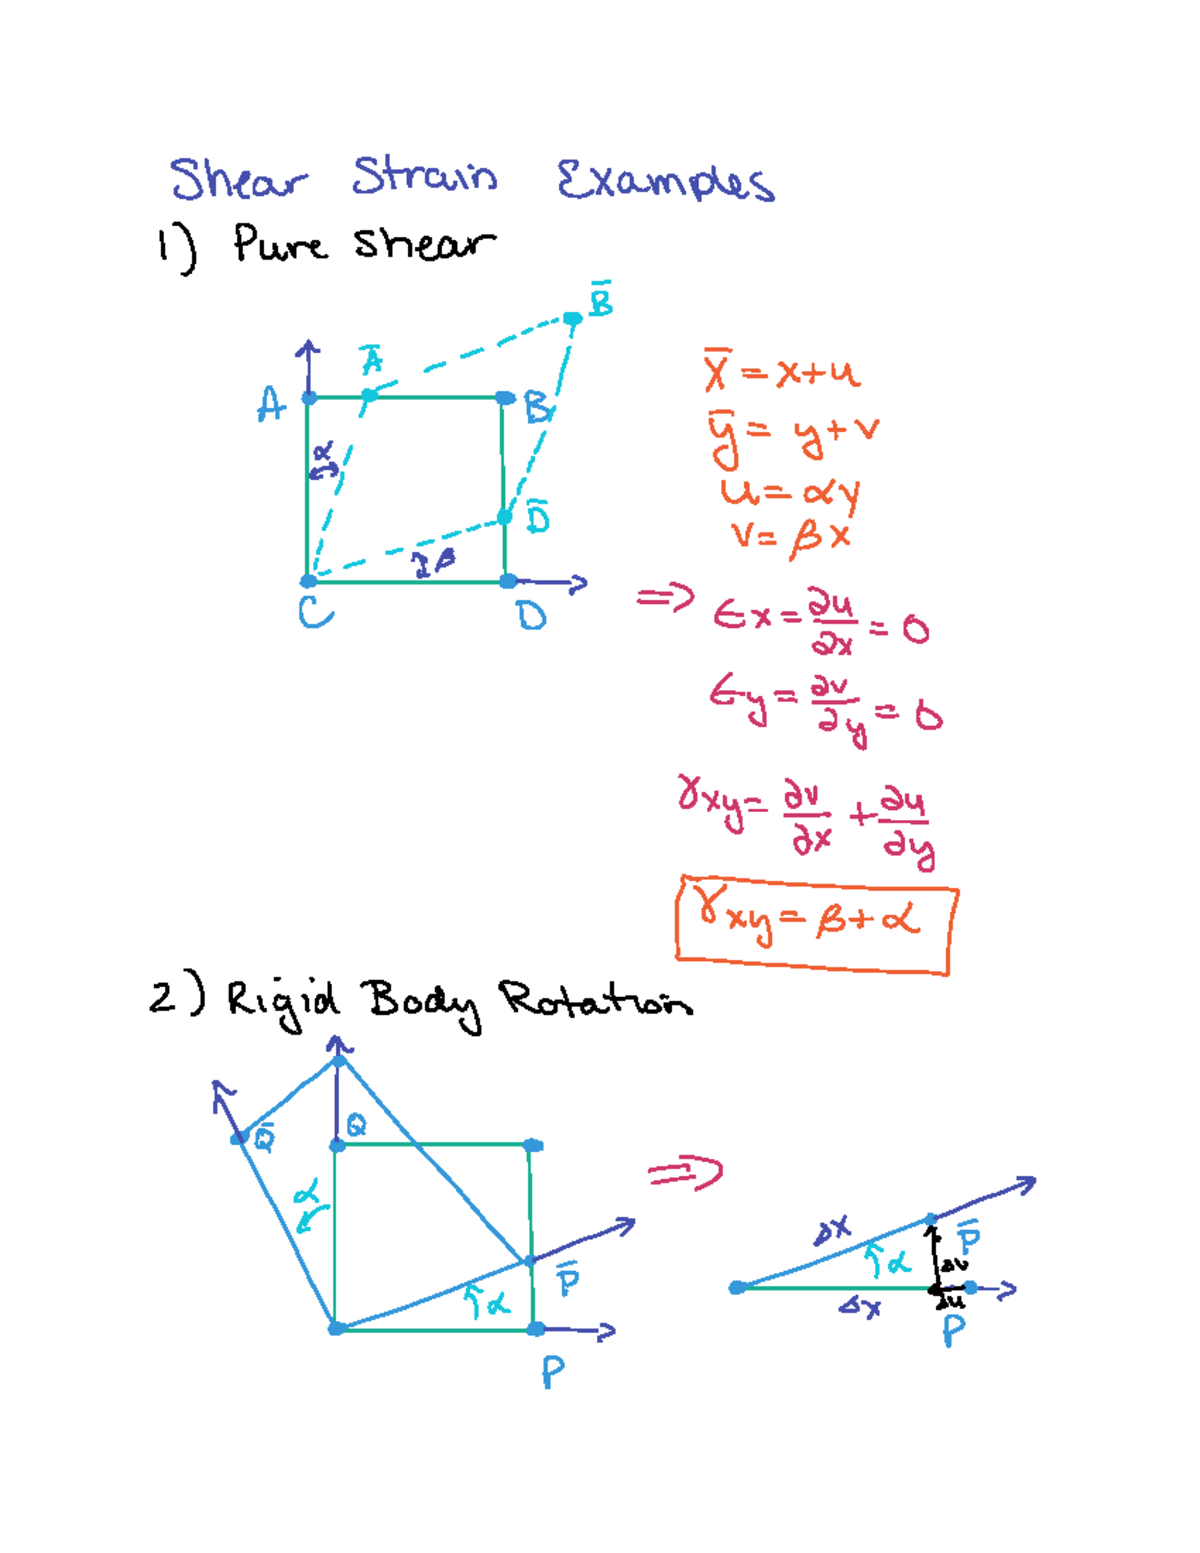 Shear Strain Examples
1) Pure Shear
B̅
A̅
A
B
α
D̅
β
C
D
x̅ = x+u
y̅ = y+v
u = αy
v = βx
⇒ ϵx = ∂u/∂x = 0
ϵy = ∂v/∂y = 0
γxy = ∂v/∂x + ∂u/∂y
γxy = β+α
2) Rigid Body Rotation
Q̅
Q
α
P̅
α
P
⇒
Δx
P̅
α
Δv
Δx
Δu
P